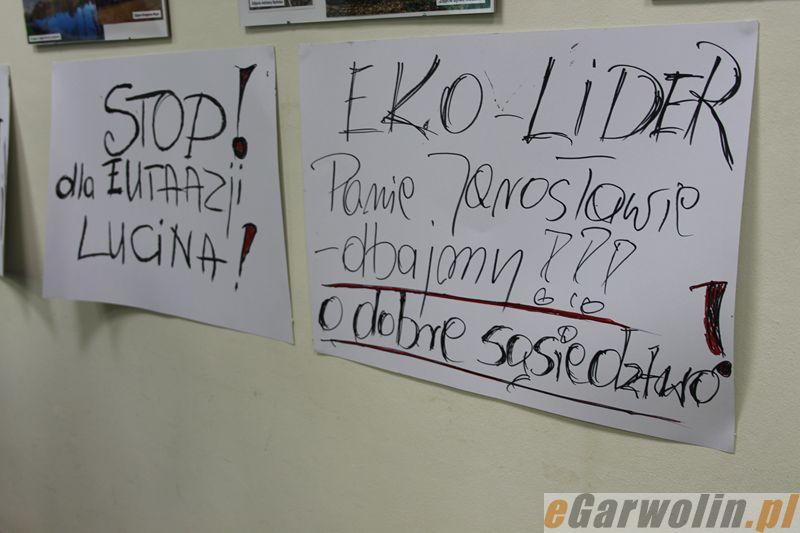 STOP!
dla EUTAAZJI
LUCINA!
EKO-LiDER
Panie Jarosławie
- dbajmy ???
o dobre sąsiedztwo!
eGarwolin.pl